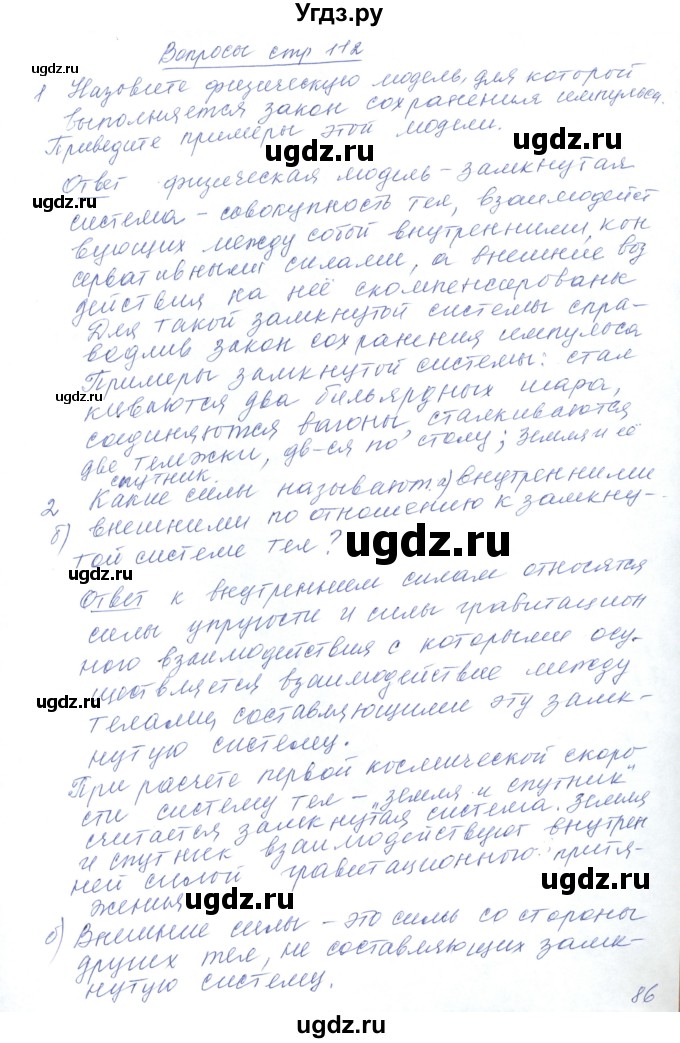 Угдз.ру
Вопросы стр 112
1 Назовите физическую модель, для которой
выполняется закон сохранения импульса.
Приведите примеры этой модели.
Ответ физическая модель – замкнутая
система – совокупность тел, взаимодейст
вующих между собой внутренними, кон
сервативными силами, а внешние воз
действия на неё скомпенсированы
Для такой замкнутой системы спра-
ведлив закон сохранения импульса
Примеры замкнутой системы: стал
киваются два бильярдных шара,
соединяются вагоны, сталкиваются
две тележки, дв-ся по столу; Земля и её
спутник.
2 Какие силы называют: а) внутренними
б) внешними по отношению к замкну-
той системе тел?
Ответ к внутренним силам относятся
силы упругости и силы гравитацион
ного взаимодействия с которыми осу-
ществляется взаимодействие между
телами, составляющими эту замк-
нутую систему.
При расчете первой космической скоро
сти систему тел – „Земля и спутник"
считается замкнутая система. Земля
и спутник взаимодействуют внутрен
ней силой гравитационного притя-
жения
б) Внешние силы – это силы со стороны
других тел, не составляющих замк-
нутую систему.
86
ugdz.ru
ugdz.ru
ugdz.ru
ugdz.ru
ugdz.ru
ugdz.ru
ugdz.ru
ugdz.ru
ugdz.ru
ugdz.ru
ugdz.ru
ugdz.ru
ugdz.ru
ugdz.ru